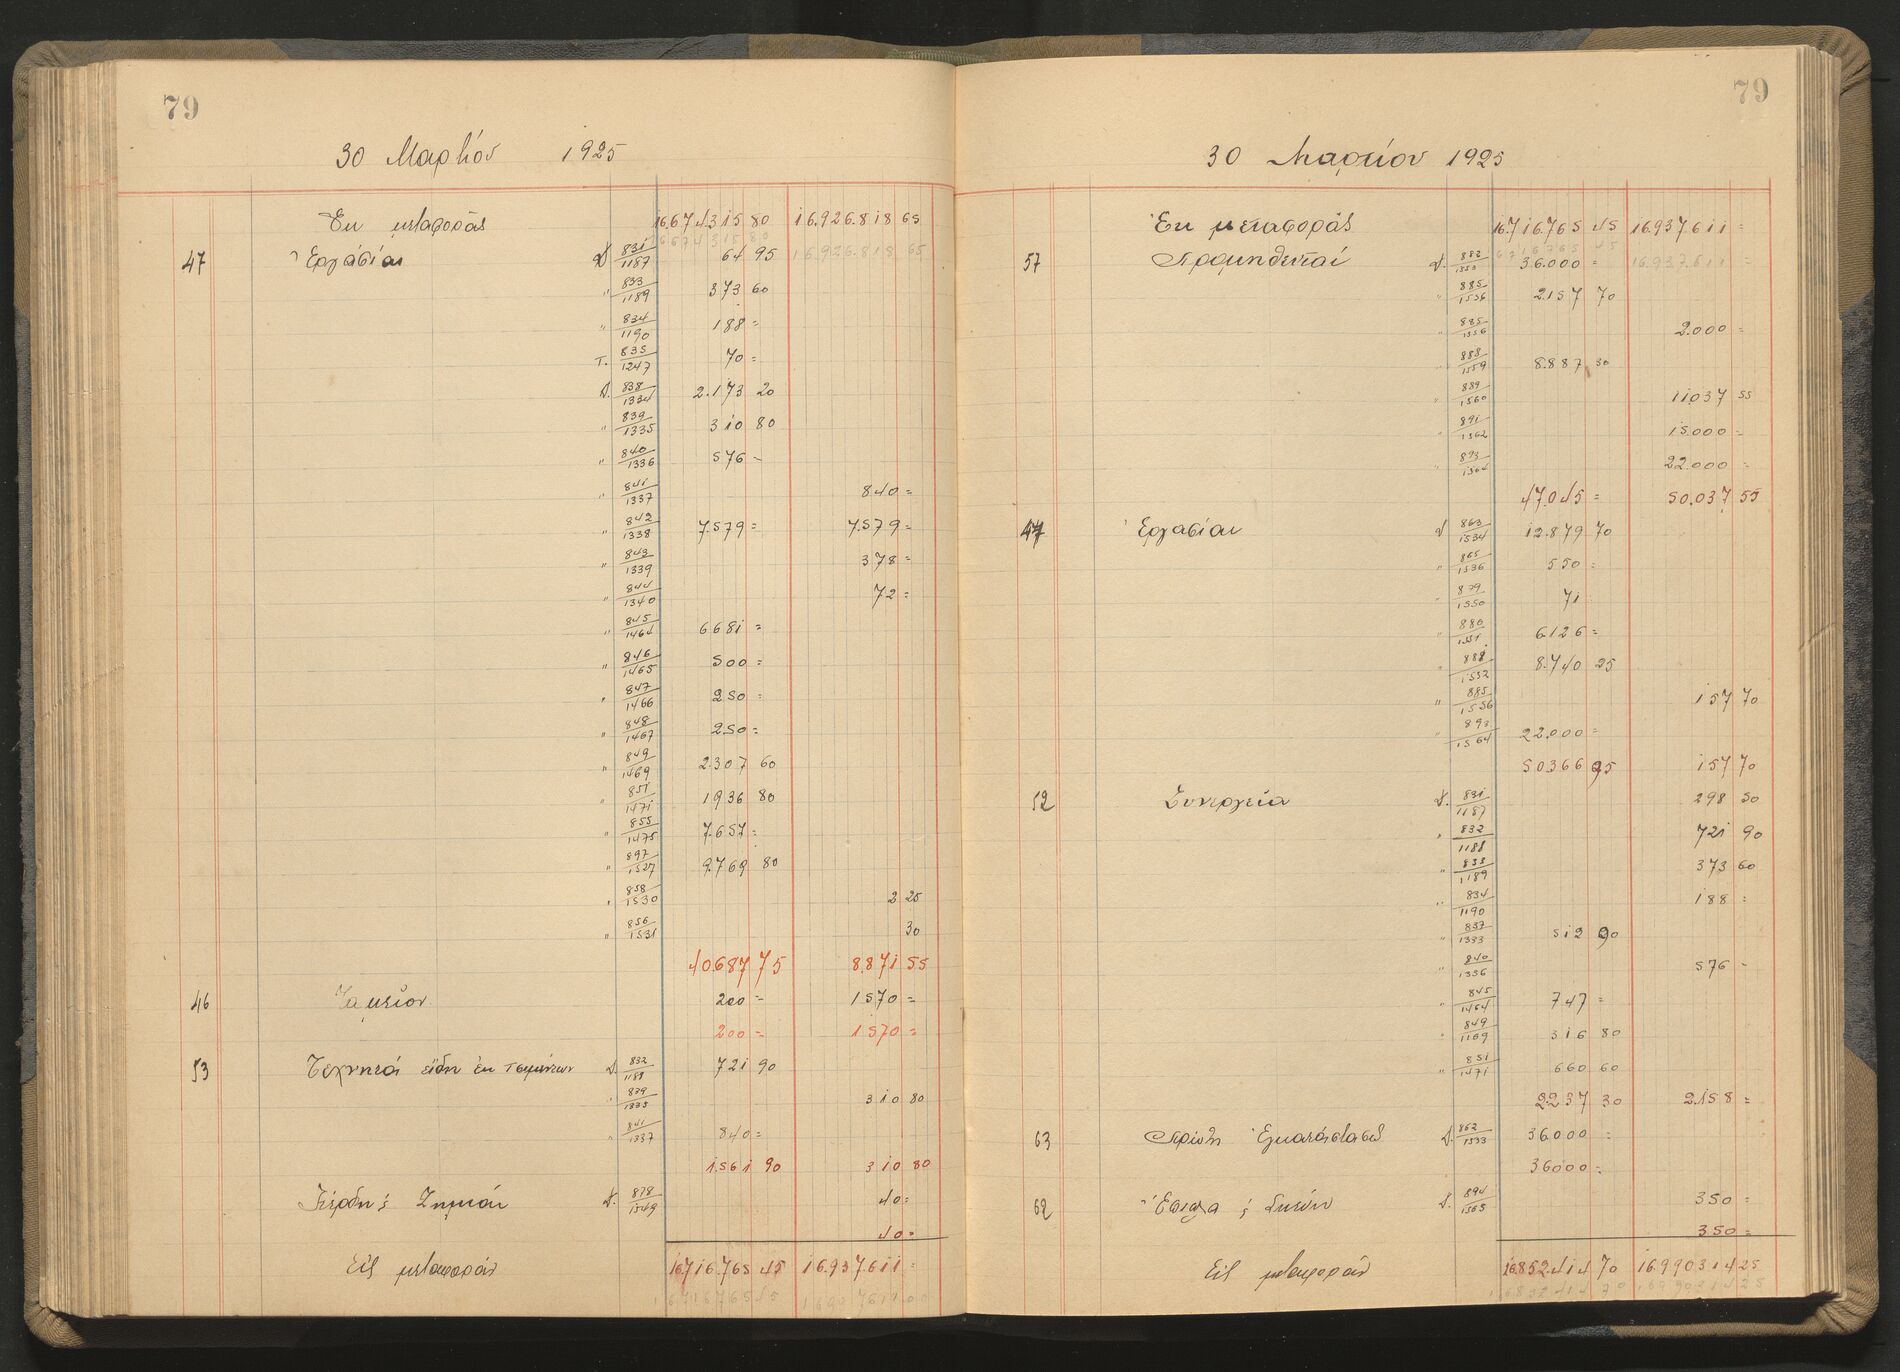 79
30 Μαρτίου 1925
Εκ μεταφοράς 16.674.315 80 16.926.818 65
16674315 80
47 Εργασίαι Δ 831/1187 64 95 16.926.818 65
" 833/1189 373 60
" 834/1190 188 =
Τ. 835/1247 70 =
Δ. 838/1334 2.173 20
" 839/1335 310 80
" 840/1336 576 =
" 841/1337 840 =
" 842/1338 7.579 = 7.579 =
" 843/1339 378 =
" 844/1340 72 =
" 845/1464 6681 =
" 846/1465 500 =
" 847/1466 250 =
" 848/1467 250 =
" 849/1469 2.307 60
" 851/1471 1936 80
" 855/1475 7.657 =
" 897/1527 9.769 80
" 858/1530 2 25
" 856/1531 30
40.687 75 8.871 55
46 Ταμείον 200 = 1570 =
200 = 1570 =
53 Τεχνητά είδη εκ τσιμέντων Δ. 832/1188 721 90
" 839/1335 310 80
" 841/1337 840 =
1.561 90 310 80
Κέρδη & Ζημίαι Δ. 878/1549 40 =
40 =
Εις μεταφοράν 16.716.765 45 16.937.611 =
16716765 45 16937611 00
79
30 Μαρτίου 1925
Εκ μεταφοράς 16.716.765 45 16.937.611 =
16716765 45
57 Προμηθευταί Δ. 882/1553 36.000 = 16.937.611 =
" 885/1556 2.157 70
" 885/1556 2.000 =
" 888/1559 8.887 30
" 889/1560 11.037 55
" 891/1562 15.000 =
" 893/1564 22.000 =
47.045 = 50.037 55
47 Εργασίαι Δ 863/1534 12.879 70
" 865/1536 550 =
" 879/1550 71
" 880/1551 6126 =
" 881/1552 8.740 25
" 885/1556 157 70
" 893/1564 22.000 =
50366 95 157 70
52 Συνεργεία Δ. 831/1187 298 50
" 832/1188 721 90
" 833/1189 373 60
" 834/1190 188 =
" 837/1333 512 90
" 840/1336 576 =
" 845/1464 747 =
" 849/1469 316 80
" 851/1471 660 60
2.237 30 2.158 =
63 Πρώτη Εγκατάστασις Δ. 862/1533 36.000 =
36000 =
62 Έπιπλα & Σκεύη Δ. 894/1565 350 =
350 =
Εις μεταφοράν 16.852.414 70 16.990314 25
16852414 70 16990314 25